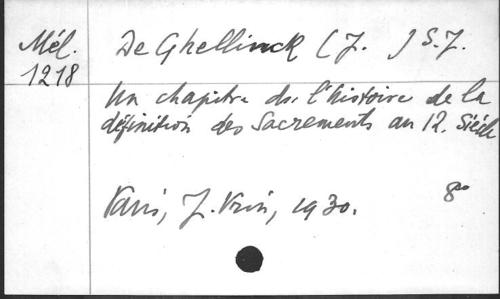 Mél.
1218
De Ghellinck (J. ) S.J.
Un chapitre ds. l'histoire de la
définition des Sacrements au 12. Siècle
Paris, J. Vrin, 1930.
8°